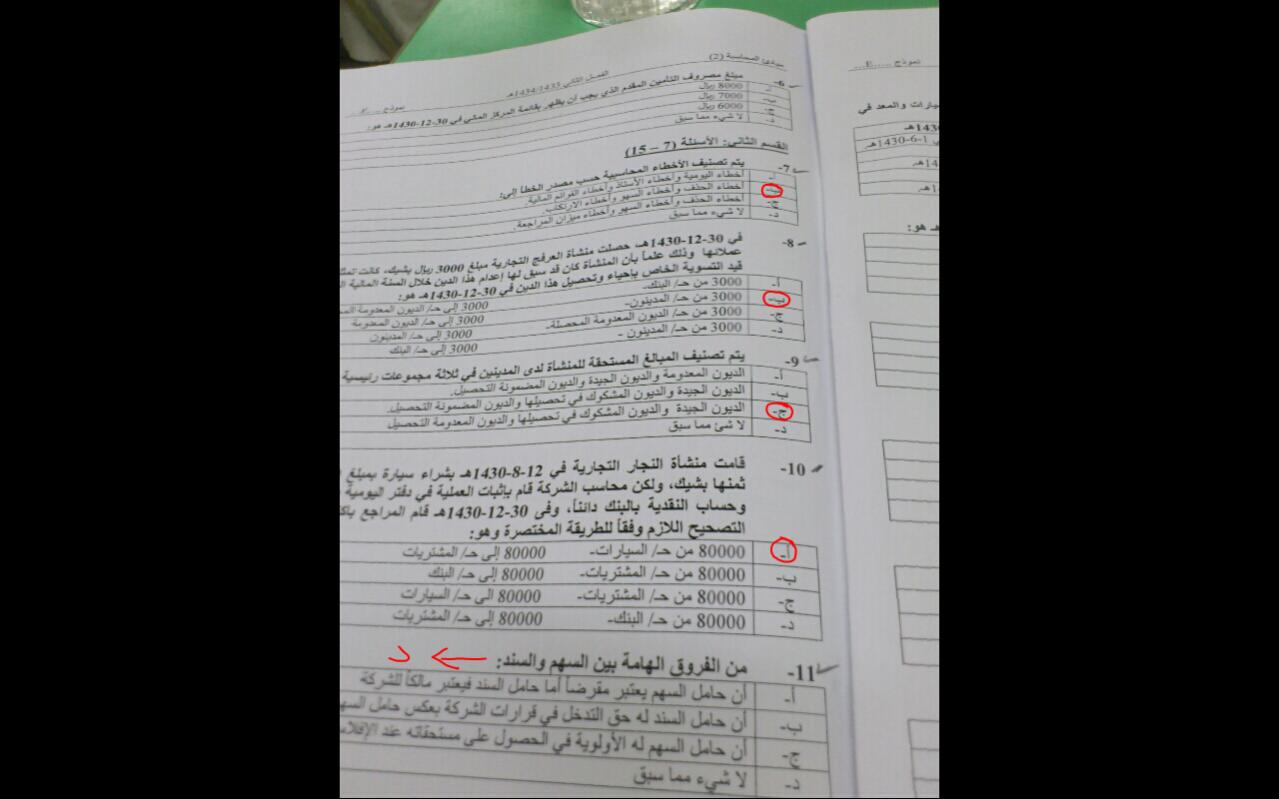 مبادئ المحاسبة (2)
الفصل الثاني 1434/1435هـ
نموذج ....E...
6- مبلغ مصروف التأمين المقدم الذي يجب أن يظهر بقائمة المركز المالي في 30-12-1430هـ هو:
أ- 8000 ريال
ب- 7000 ريال
ج- 6000 ريال
د- لا شيء مما سبق
القسم الثاني: الأسئلة (7 – 15)
7- يتم تصنيف الأخطاء المحاسبية حسب مصدر الخطأ إلى:
أ- أخطاء اليومية وأخطاء الأستاذ وأخطاء القوائم المالية.
ب- أخطاء الحذف وأخطاء السهو وأخطاء الارتكاب.
ج- أخطاء الحذف وأخطاء السهو وأخطاء ميزان المراجعة.
د- لا شيء مما سبق
8- في 30-12-1430هـ، حصلت منشأة العرفج التجارية مبلغ 3000 ريال بشيك، كانت
عملائها وذلك علماً بأن المنشأة كان قد سبق لها إعدام هذا الدين خلال السنة المالية
قيد التسوية الخاص بإحياء وتحصيل هذا الدين في 30-12-1430هـ هو:
أ- 3000 من حـ/ البنك- 3000 إلى حـ/ الديون المعدومة
ب- 3000 من حـ/ المدينون- 3000 إلى حـ/ الديون المعدومة
ج- 3000 من حـ/ الديون المعدومة المحصلة- 3000 إلى حـ/ المدينون
د- 3000 من حـ/ المدينون - 3000 إلى حـ/ البنك
9- يتم تصنيف المبالغ المستحقة للمنشأة لدى المدينين في ثلاثة مجموعات رئيسية
أ- الديون المعدومة والديون الجيدة والديون المضمونة التحصيل.
ب- الديون الجيدة والديون المشكوك في تحصيلها والديون المضمونة التحصيل.
ج- الديون الجيدة والديون المشكوك في تحصيلها والديون المعدومة التحصيل
د- لا شئ مما سبق
10- قامت منشأة النجار التجارية في 12-8-1430هـ بشراء سيارة بمبلغ
ثمنها بشيك، ولكن محاسب الشركة قام بإثبات العملية في دفتر اليومية
وحساب النقدية بالبنك دائناً، وفى 30-12-1430هـ قام المراجع
التصحيح اللازم وفقاً للطريقة المختصرة وهو:
أ- 80000 من حـ/ السيارات- 80000 إلى حـ/ المشتريات
ب- 80000 من حـ/ المشتريات- 80000 إلى حـ/ البنك
ج- 80000 من حـ/ المشتريات- 80000 الى حـ/ السيارات
د- 80000 من حـ/ البنك- 80000 إلى حـ/ المشتريات
11- من الفروق الهامة بين السهم والسند: د
أ- أن حامل السهم يعتبر مقرضاً أما حامل السند فيعتبر مالكاً للشركة
ب- أن حامل السند له حق التدخل في قرارات الشركة بعكس حامل
ج- أن حامل السهم له الأولوية في الحصول على مستحقاته عند
د- لا شيء مما سبق
نموذج .....E...
سيارات والمعد في
1-6-1430هـ
هـ هو: